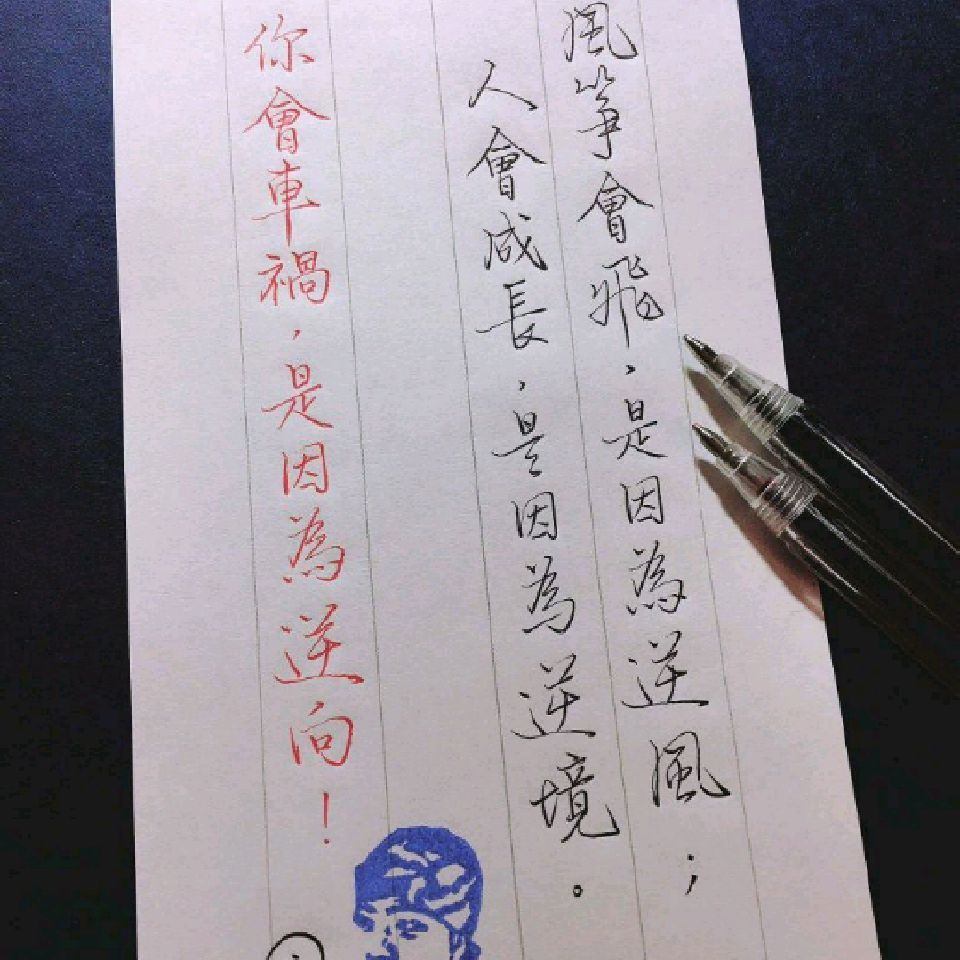 風箏會飛，是因為逆風；
人會成長，是因為逆境。
你會車禍，是因為逆向！